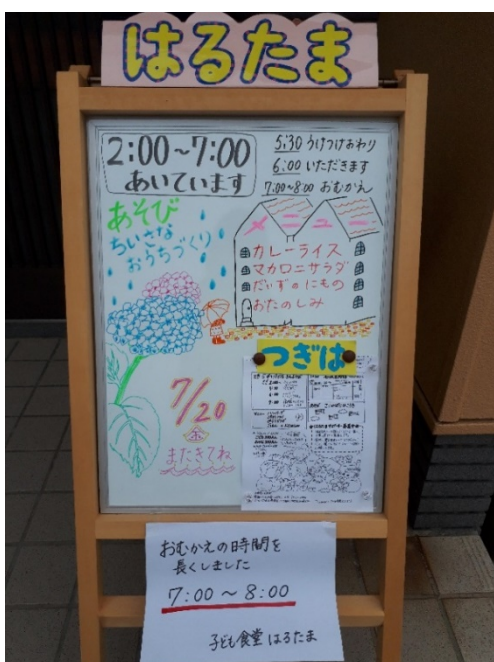 はるたま
2:00〜7:00
あいています
5:30 うけつけおわり
6:00 いただきます
7:00〜8:00 おむかえ
あそび
ちいさな
おうちづくり
メニュー
カレーライス
マカロニサラダ
だいずのにもの
おたのしみ
つぎは
7/20
またきてね
おむかえの時間を
長くしました
7:00〜8:00
子ども食堂 はるたま